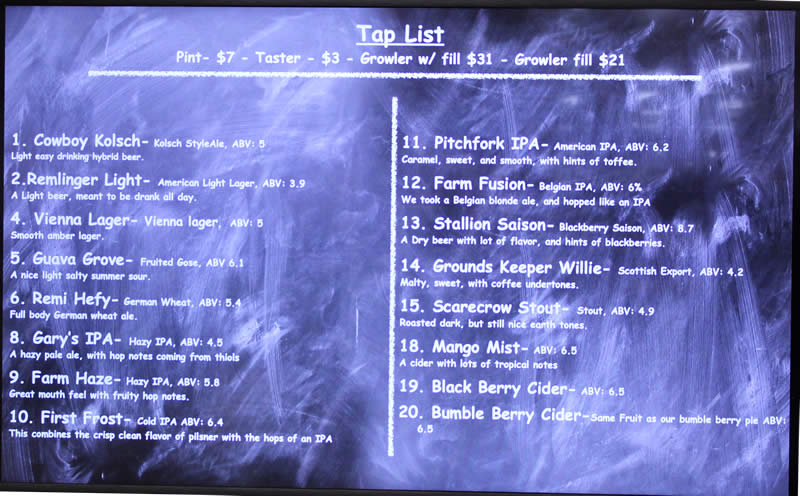 Tap List
Pint- $7 - Taster - $3 - Growler w/ fill $31 - Growler fill $21
1. Cowboy Kolsch- Kolsch StyleAle, ABV: 5
Light easy drinking hybrid beer.
2.Remlinger Light- American Light Lager, ABV: 3.9
A Light beer, meant to be drank all day.
4. Vienna Lager- Vienna lager, ABV: 5
Smooth amber lager.
5. Guava Grove- Fruited Gose, ABV 6.1
A nice light salty summer sour.
6. Remi Hefy- German Wheat, ABV: 5.4
Full body German wheat ale.
8. Gary's IPA- Hazy IPA, ABV: 4.5
A hazy pale ale, with hop notes coming from thiols
9. Farm Haze- Hazy IPA, ABV: 5.8
Great mouth feel with fruity hop notes.
10. First Frost- Cold IPA ABV: 6.4
This combines the crisp clean flavor of pilsner with the hops of an IPA
11. Pitchfork IPA- American IPA, ABV: 6.2
Caramel, sweet, and smooth, with hints of toffee.
12. Farm Fusion- Belgian IPA, ABV: 6%
We took a Belgian blonde ale, and hopped like an IPA
13. Stallion Saison- Blackberry Saison, ABV: 8.7
A Dry beer with lot of flavor, and hints of blackberries.
14. Grounds Keeper Willie- Scottish Export, ABV: 4.2
Malty, sweet, with coffee undertones.
15. Scarecrow Stout- Stout, ABV: 4.9
Roasted dark, but still nice earth tones.
18. Mango Mist- ABV: 6.5
A cider with lots of tropical notes
19. Black Berry Cider- ABV: 6.5
20. Bumble Berry Cider-Same Fruit as our bumble berry pie ABV:
6.5